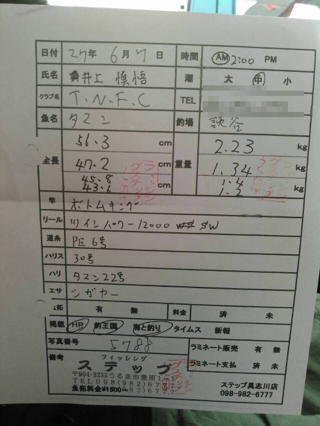 日付 27年 6月 7日 時間 AM 2:00 PM
氏名 井上 慎悟 潮 大 中 小
クラブ名 T.N.F.C TEL
魚名 タマン 釣場 訳谷
全長 56.3 cm 重量 2.23 kg
47.2 1.34
45.8 1.4
43.1 cm 1.2 kg
竿 ボトムキング
リール ツインパワー12000 SW
道糸 PE 6号
ハリス 30号
ハリ タマン22号
エサ シガヤー
拓 有 無 料金 済 未
掲載 HP 釣王国 海と釣り タイムス 新報
写真番号 5788 ラミネート販売 有 無
備考 フィッシング ラミネート支払 済 未
ステップ
〒904-2233うるま市豊原1
TEL098(982)67
魚拓料金¥1500〜
ステップ具志川店
098-982-6777